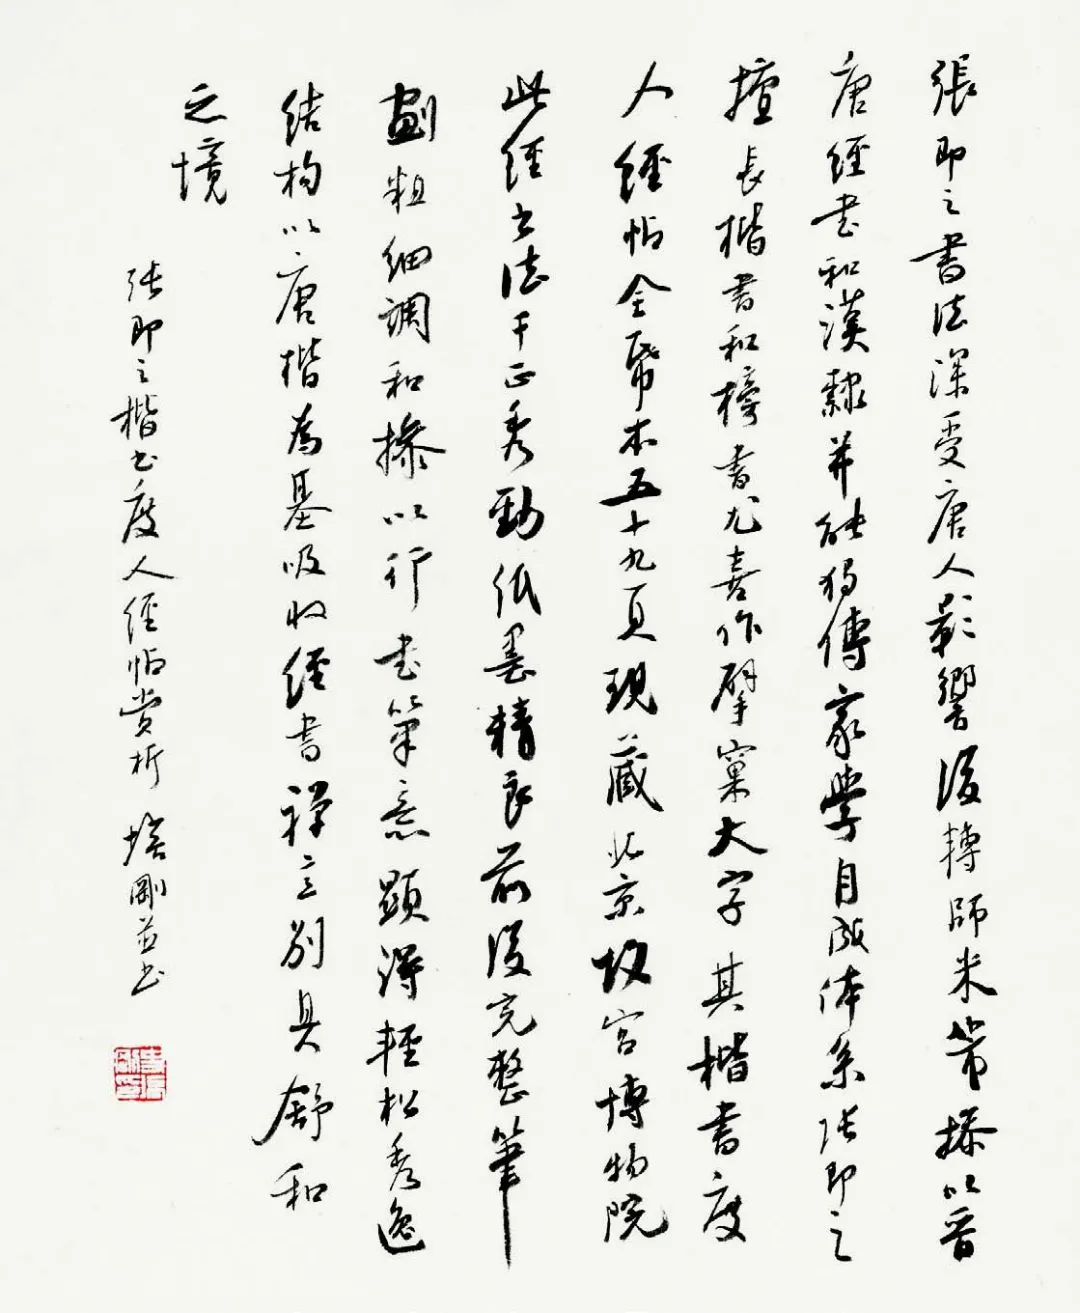 張即之書法深受唐人影響後轉師米芾摻以晉
唐經書和漢隸并能独傳家學自成体系张即之
擅長楷書和榜書尤喜作擘窠大字其楷書度
人經帖全帋本五十九頁現藏北京故宮博物院
此經书法干正秀勁纸墨精良前後完整筆
劃粗细調和摻以行書筆意顯得輕松秀逸
结构以唐楷為基吸收經書禅意别具舒和
之境
张即之楷书度人经帖赏析 培剛并书